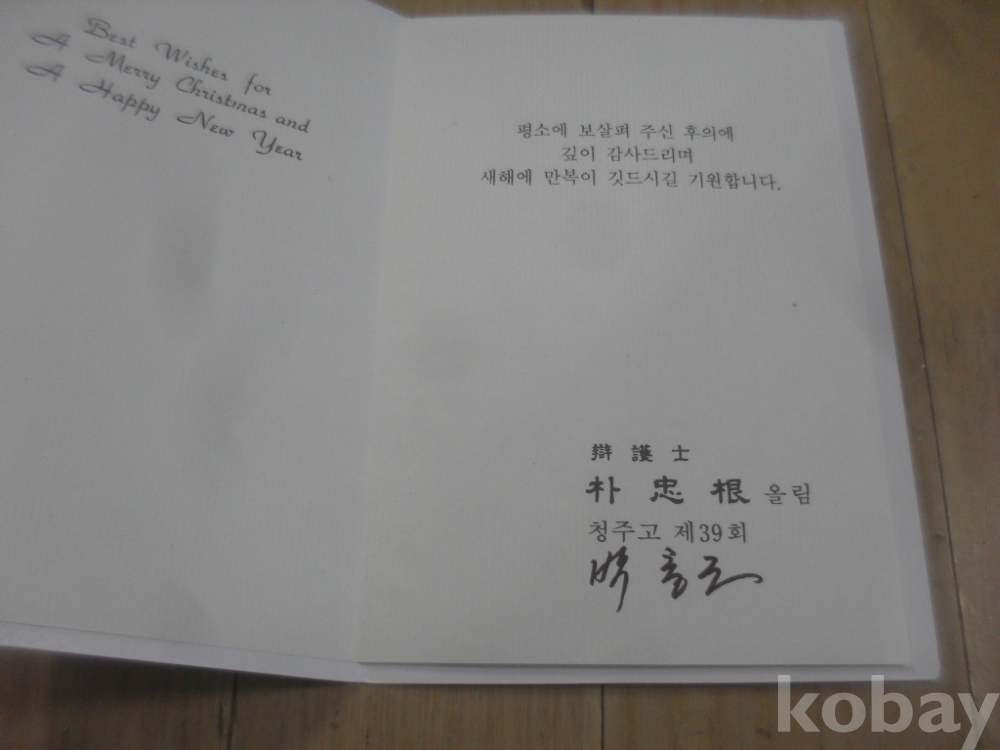 Best Wishes for
A Merry Christmas and
A Happy New Year
평소에 보살펴 주신 후의에
깊이 감사드리며
새해에 만복이 깃드시길 기원합니다.
辯護士
朴忠根 올림
청주고 제39회
박충근
kobay